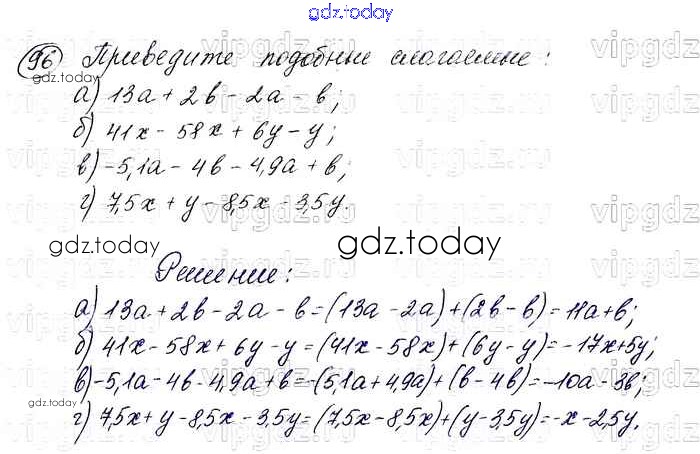 gdz.today
96 Приведите подобные слагаемые:
а) 13a + 2b - 2a - b;
б) 41x - 58x + 6y - y;
в) -5,1a - 4b - 4,9a + b;
г) 7,5x + y - 8,5x - 3,5y.
gdz.today gdz.today
Решение:
а) 13a + 2b - 2a - b = (13a - 2a) + (2b - b) = 11a + b;
б) 41x - 58x + 6y - y = (41x - 58x) + (6y - y) = -17x + 5y;
в) -5,1a - 4b - 4,9a + b = -(5,1a + 4,9a) + (b - 4b) = -10a - 3b;
gdz.today
г) 7,5x + y - 8,5x - 3,5y = (7,5x - 8,5x) + (y - 3,5y) = -x - 2,5y.
gdz.today
vipgdz.ru